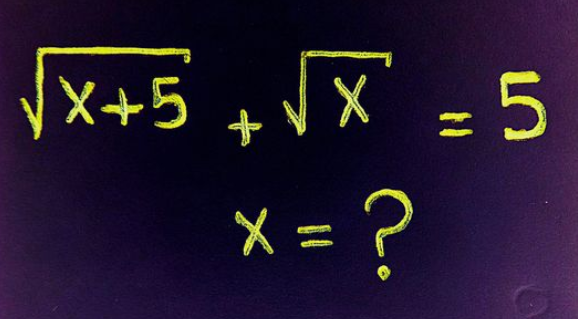 √(x+5) + √x = 5
x = ?